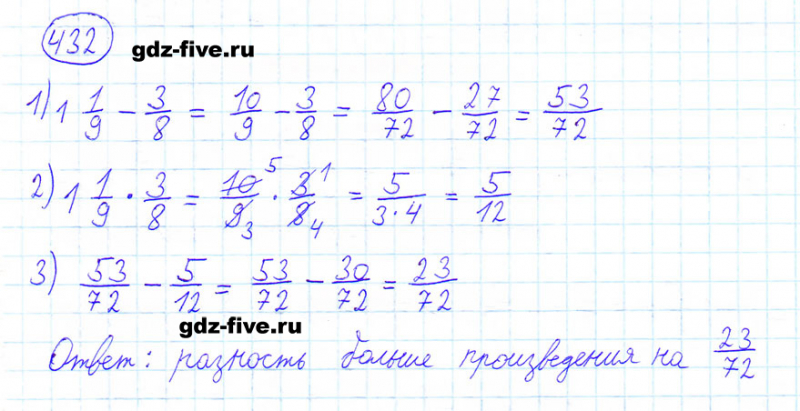 432
gdz-five.ru
1) 1 1/9 - 3/8 = 10/9 - 3/8 = 80/72 - 27/72 = 53/72
2) 1 1/9 · 3/8 = 10 5/9 3 · 3 1/8 4 = 5/3·4 = 5/12
3) 53/72 - 5/12 = 53/72 - 30/72 = 23/72
gdz-five.ru
Ответ: разность больше произведения на 23/72